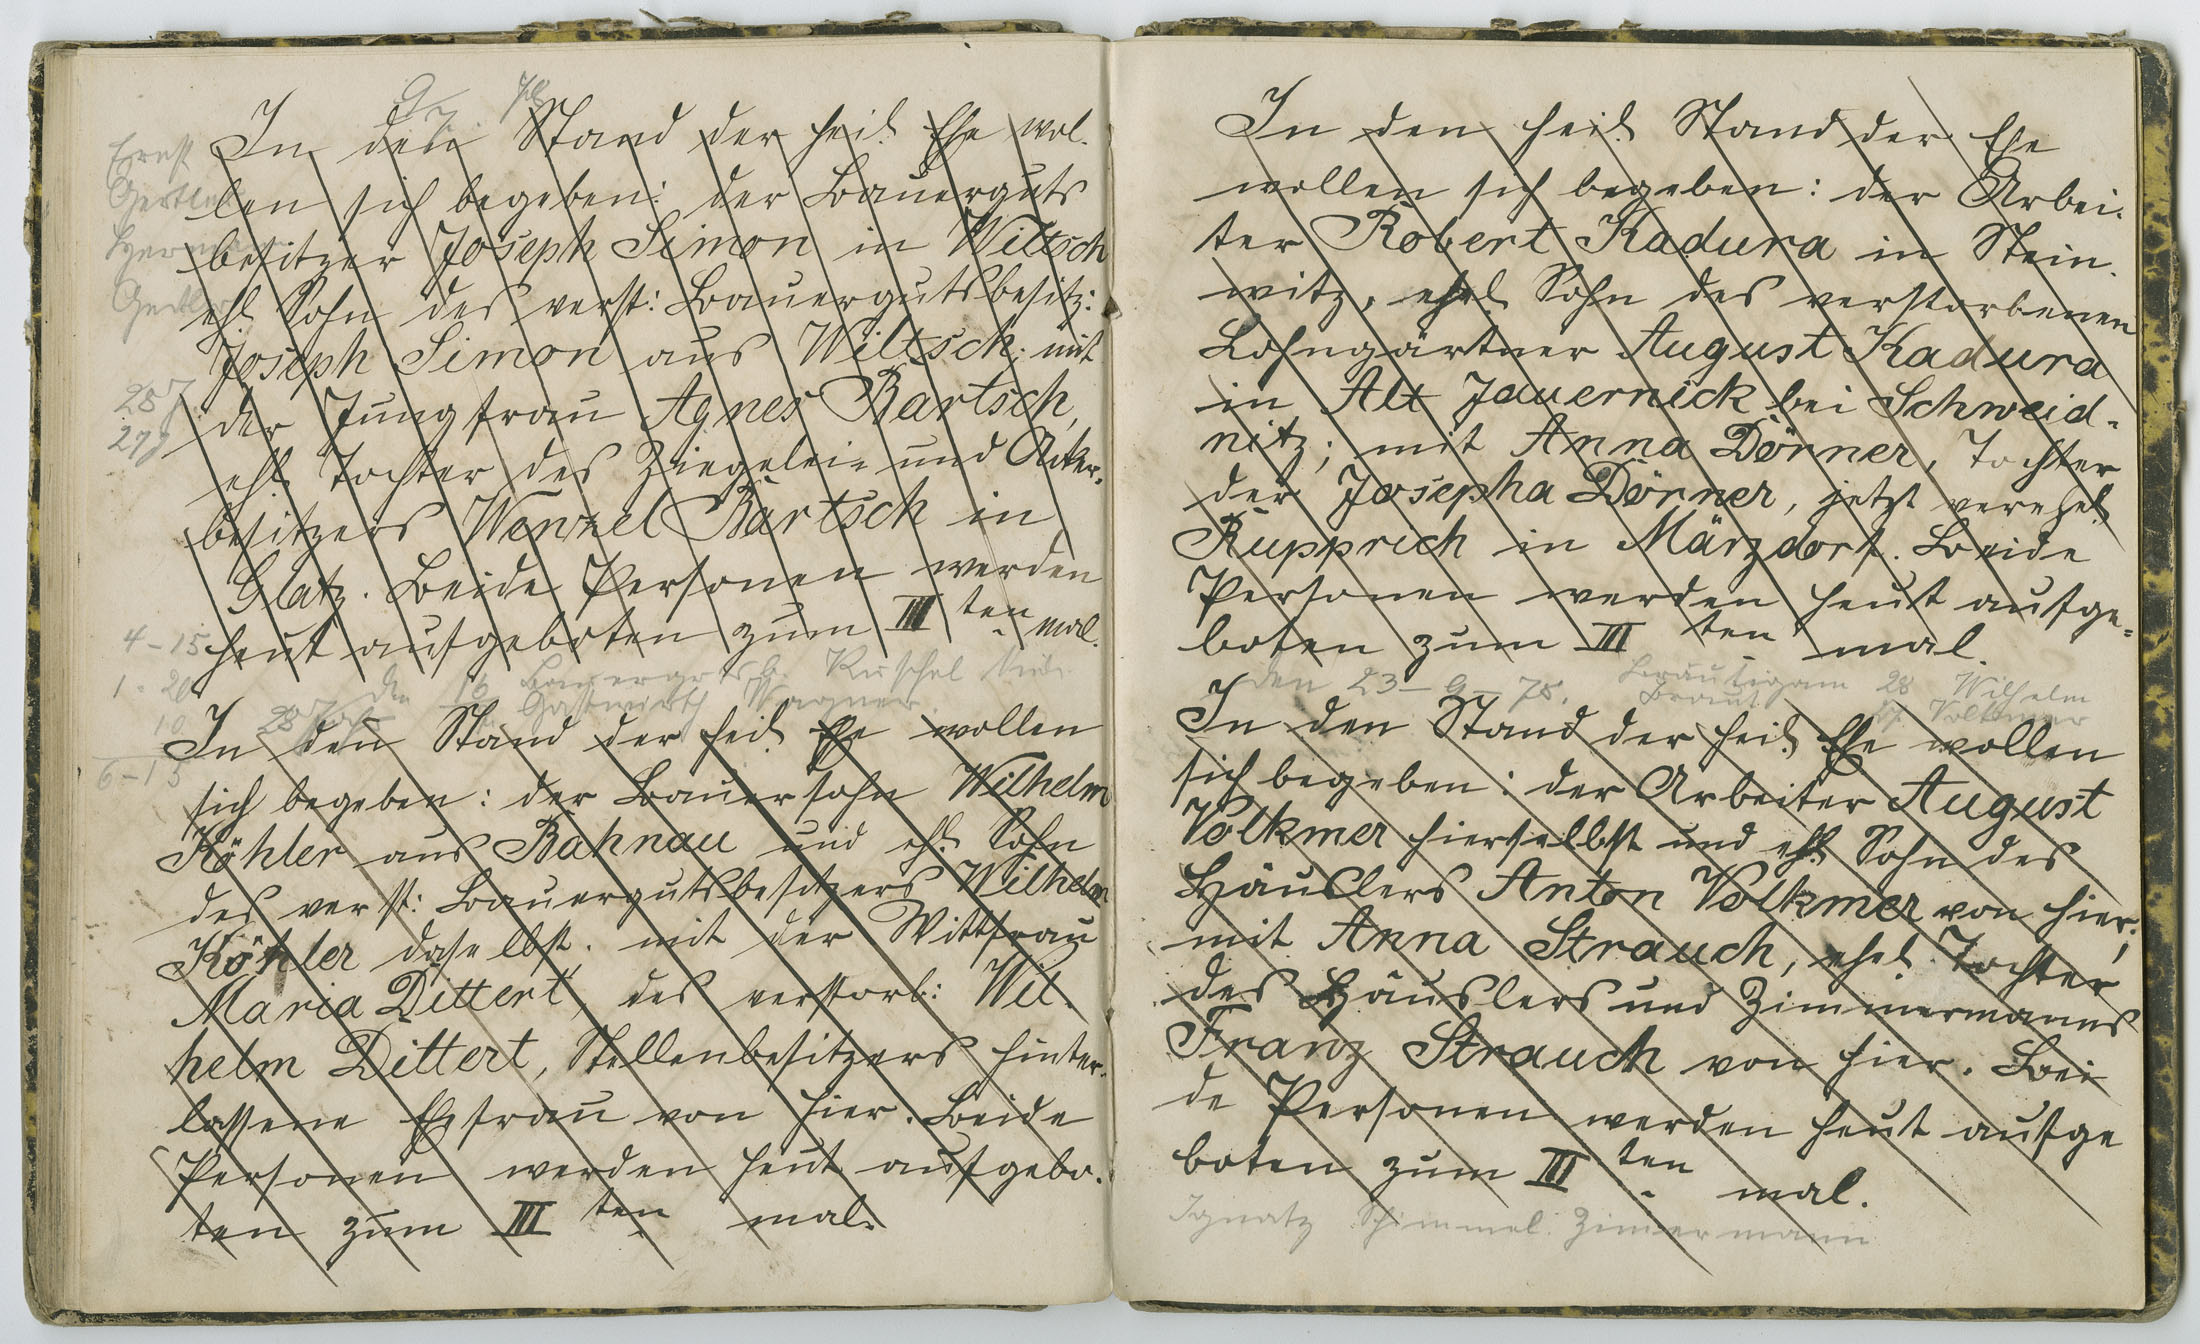 In den Stand der heil. Ehe wol-
len sich begeben: der Bauerguts
besitzer Joseph Simon in Wiltsch
ehl. Sohn des verst: Bauergutsbesitz:
Joseph Simon aus Wiltsch; mit
der Jungfrau Agnes Bartsch,
ehl. Tochter des Ziegelei- und Acker-
besitzers Wenzel Bartsch in
Glatz. Beide Personen werden
heut aufgeboten zum III ten mal.
Ernst
Hermann
28 J.
27 J
4-15
1-20
10
6-15
den 16 Bauergutsb. Ruschel
28 Jahr Gastwirth Wagner.
In den Stand der heil. Ehe wollen
sich begeben: der Bauersohn Wilhelm
Köhler aus Bahnau und ehl. Sohn
des verst: Bauergutsbesitzers Wilhelm
Köhler daselbst. mit der Wittfrau
Maria Dittert, des verstorb: Wil-
helm Dittert, Stellenbesitzers hinter-
lassene Ehfrau von hier. Beide
Personen werden heut aufgebo-
ten zum III ten mal.
In den heil. Stand der Ehe
wollen sich begeben: der Arbei-
ter Robert Kadura in Stein-
witz, ehel. Sohn des verstorbenen
Lohngärtner August Kadura
in Alt Jauernick bei Schweid-
nitz; mit Anna Dörner, Tochter
der Josepha Dörner, jetzt verehel.
Rupprich in Märzdorf. Beide
Personen werden heut aufge-
boten zum III ten mal.
den 23-9-78. Bräutigam 28 Wilhelm
Braut Volkmer
In den Stand der heil. Ehe wollen
sich begeben: der Arbeiter August
Volkmer hierselbst und ehl. Sohn des
Häuslers Anton Volkmer von hier;
mit Anna Strauch, ehel. Tochter
des Häuslers und Zimmermanns
Franz Strauch von hier. Bei
de Personen werden heut aufge
boten zum III ten mal.
Ignatz Schimmel Zimermann